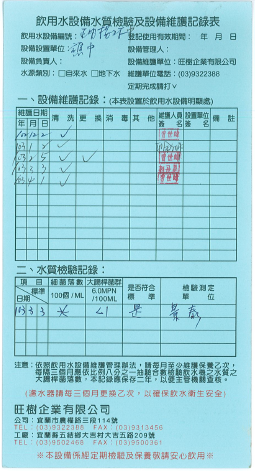 飲用水設備水質檢驗及設備維護記錄表
飲用水設備編號：
登記使用有效期間： 年 月 日
設備設置單位：
設備管理人：
設備負責人：
設備維護單位：旺樹企業有限公司
水源類別：□自來水 □地下水
維護單位電話：(03)9322388
定期完成請打✓
一、設備維護記錄：(本表設置於飲用水設備明顯處)
維護日期 清洗 更換 消毒 其他 維護人員簽名 設置單位簽名 備註
年 月 日
102 12 2 ✓
103 1 2 ✓
103 2 5 ✓ ✓
103 3 3 ✓
103 4 1 ✓
二、水質檢驗記錄：
項目 標準 日期
細菌落數 100個/ML
大腸桿菌群 6.0MPN/100ML
是否符合標準
檢驗測定單位
103 3 3 <1 是
注意：依照飲用水設備維護管理辦法，請每月至少維護保養乙次，
每隔三個月應依比例八分之一抽驗台數檢驗飲水機之水質之
大腸桿菌落數，本記錄應保存二年，以便主管機關查核。
(濾水器請每三個月更換乙次，以確保飲水衛生安全)
旺樹企業有限公司
公司：宜蘭市農權路三段114號
TEL：(03)9322388 FAX：(03)9313456
工廠：宜蘭縣五結鄉大吉村大吉五路209號
TEL：(03)9502468 FAX：(03)9590361
❤本設備係經定期檢驗及保養敬請安心飲用❤